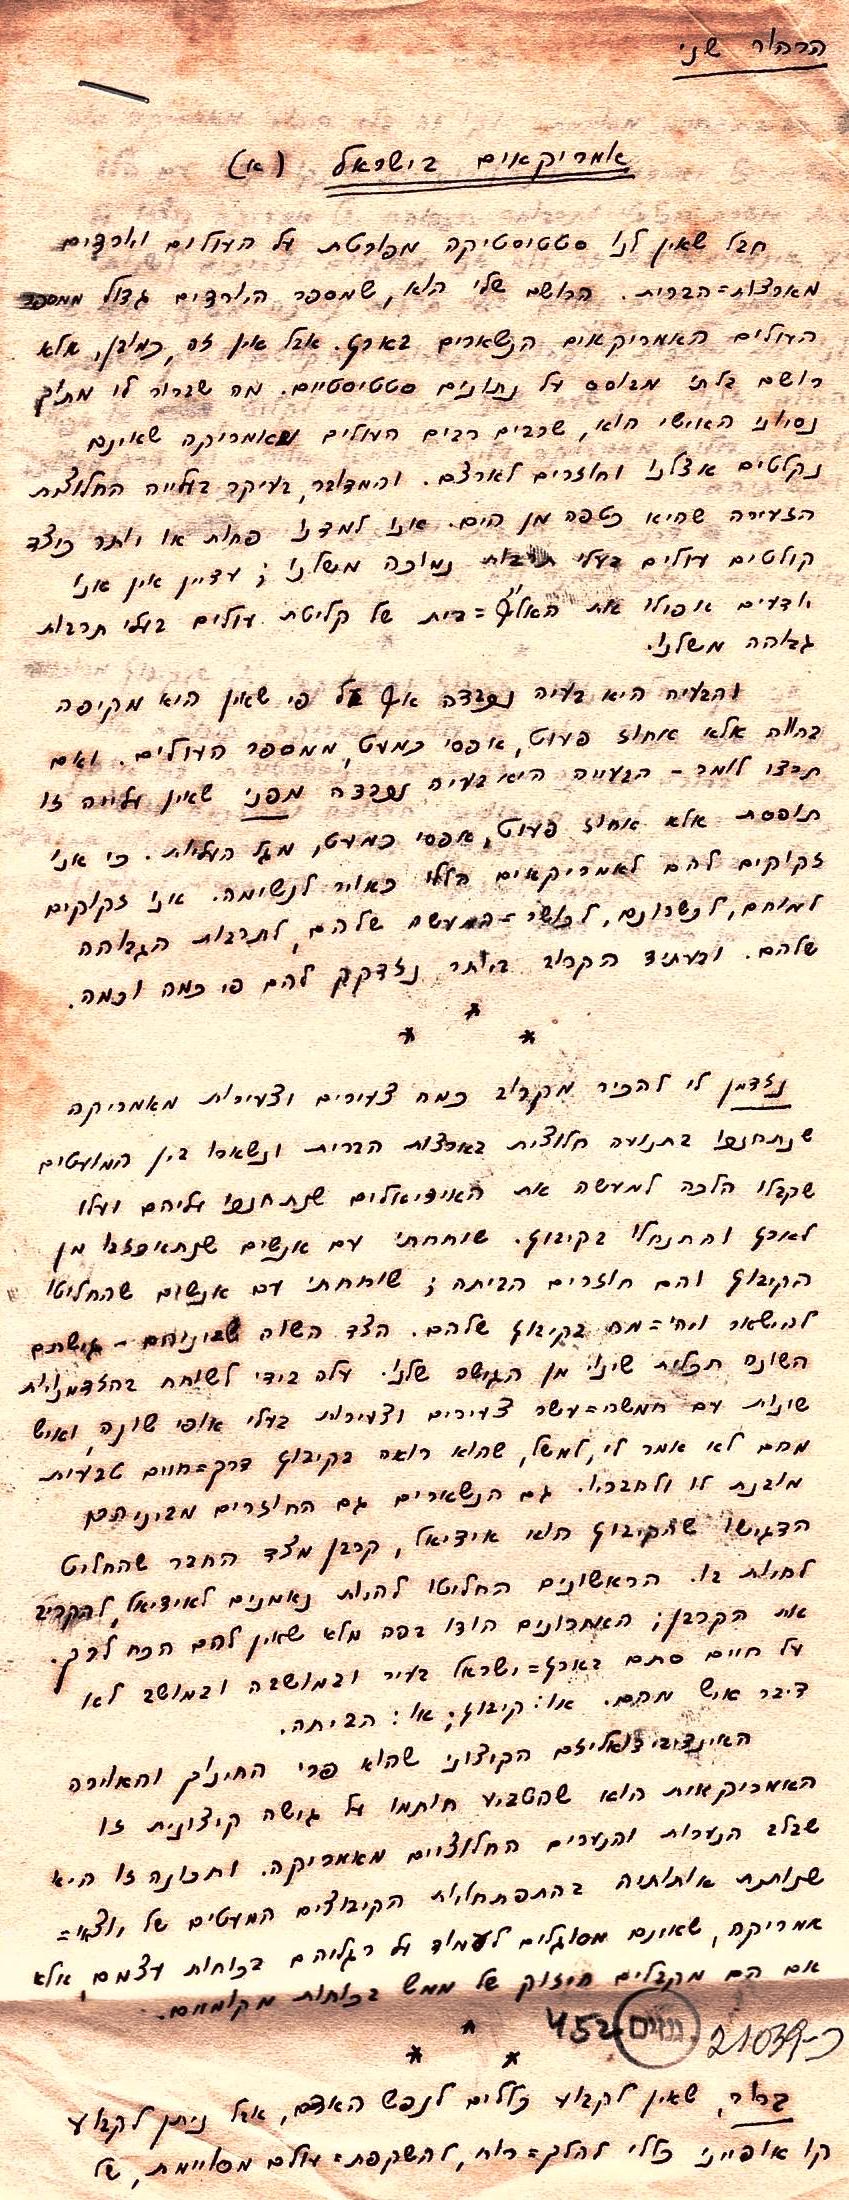 הרהור שני
אמריקאים בישראל (א)
חבל שאין לנו סטטיסטיקה מפורטת על העולים והיורדים
מארצות=הברית. הרושם שלי הוא, שמספר היורדים גדול ממספר
העולים האמריקאים הנשארים בארץ. אבל אין זה, כמובן, אלא
רושם בלתי מבוסס על נתונים סטטיסטיים. מה שברור לי מתוך
נסיוני האישי הוא, שרבים רבים העולים מאמריקה שאינם
נקלטים אצלנו וחוזרים לארצם. והמדובר, בעיקר בעלייה החלוצית
הזעירה שהיא כטפה מן הים. אנו למדנו פחות או יותר כיצד
קולטים עולים בעלי תרבות נמוכה משלנו; עדיין אין אנו
יודעים אפילו את האלף=בית של קליטת עולים בעלי תרבות
גבוהה משלנו.
והבעיה היא בעיה נכבדה אף על פי שאין היא מקיפה
בחיינו אלא אחוז פעוט, אפסי כמעט, ממספר העולים. ואם
תרצו לומר – הבעייה היא בעיה נכבדה מפני שאין עלייה זו
תופסת אלא אחוז פעוט, אפסי כמעט, מכל העליות. כי אנו
זקוקים להם לאמריקאים הללו כאויר לנשימה. אנו זקוקים
למוחם, לכשרונם, לכושר=המעשה שלהם, לתרבות הגבוהה
שלהם. ובעתיד הקרוב ביותר נזדקק להם פי כמה וכמה.
* * *
נזדמן לי להכיר מקרוב כמה צעירים וצעירות מאמריקה
שנתחנכו בתנועה חלוצית בארצות הברית ונשארו בין המועטים
שקבלו הלכה למעשה את האידיאלים שנתחנכו עליהם ועלו
לארץ והתנחלו בקיבוץ. שוחחתי עם אנשים שנתאכזבו מן
הקיבוץ והם חוזרים הביתה; שוחחתי עם אנשים שהחליטו
להישאר ויהי=מה בקיבוץ שלהם. הצד השוה שביניהם – גישתם
השונה תכלית שינוי מן הגישה שלנו. עלה בידי לשוחח בהזדמנויות
שונות עם חמשה=עשר צעירים וצעירות בעלי אופי שונה, ואיש
מהם לא אמר לי, למשל, שהוא רואה בקיבוץ דרך=חיים טבעית
מובנת לו ולחבריו. גם הנשארים גם החוזרים מביניהם
הדגישו שהקיבוץ הוא אידיאל, קרבן מצד החבר שהחליט
לחיות בו. הראשונים החליטו להיות נאמנים לאידיאל, להקריב
את הקרבן; האחרונים הודו בפה מלא שאין להם הכח לכך.
על חיים סתם בארץ=ישראל בעיר ובמושבה ובמושב לא
דיבר איש מהם. או: קיבוץ; או: הביתה.
האינדיבידואליזם הקיצוני שהוא פרי החינוך והאוירה
האמריקאית הוא שהטביע חותמו על גישה קיצונית זו
שבלב הנערות והנערים החלוציים מאמריקה. ותכונה זו היא
שנותנת אותותיה בהתפתחות הקיבוצים המעטים של יוצאי=
אמריקה, שאינם מסוגלים לעמוד על רגליהם בכוחות עצמם, אלא
אם הם מקבלים חיזוק של ממש בכוחות מקומיים.
* * *
452 גנזים 21039-כ
ברור, שאין לקבוע כללים לנפש האדם, אבל ניתן לקבוע
קו אופייני כללי להלך=רוח, להשקפת=עולם מסויימת, של